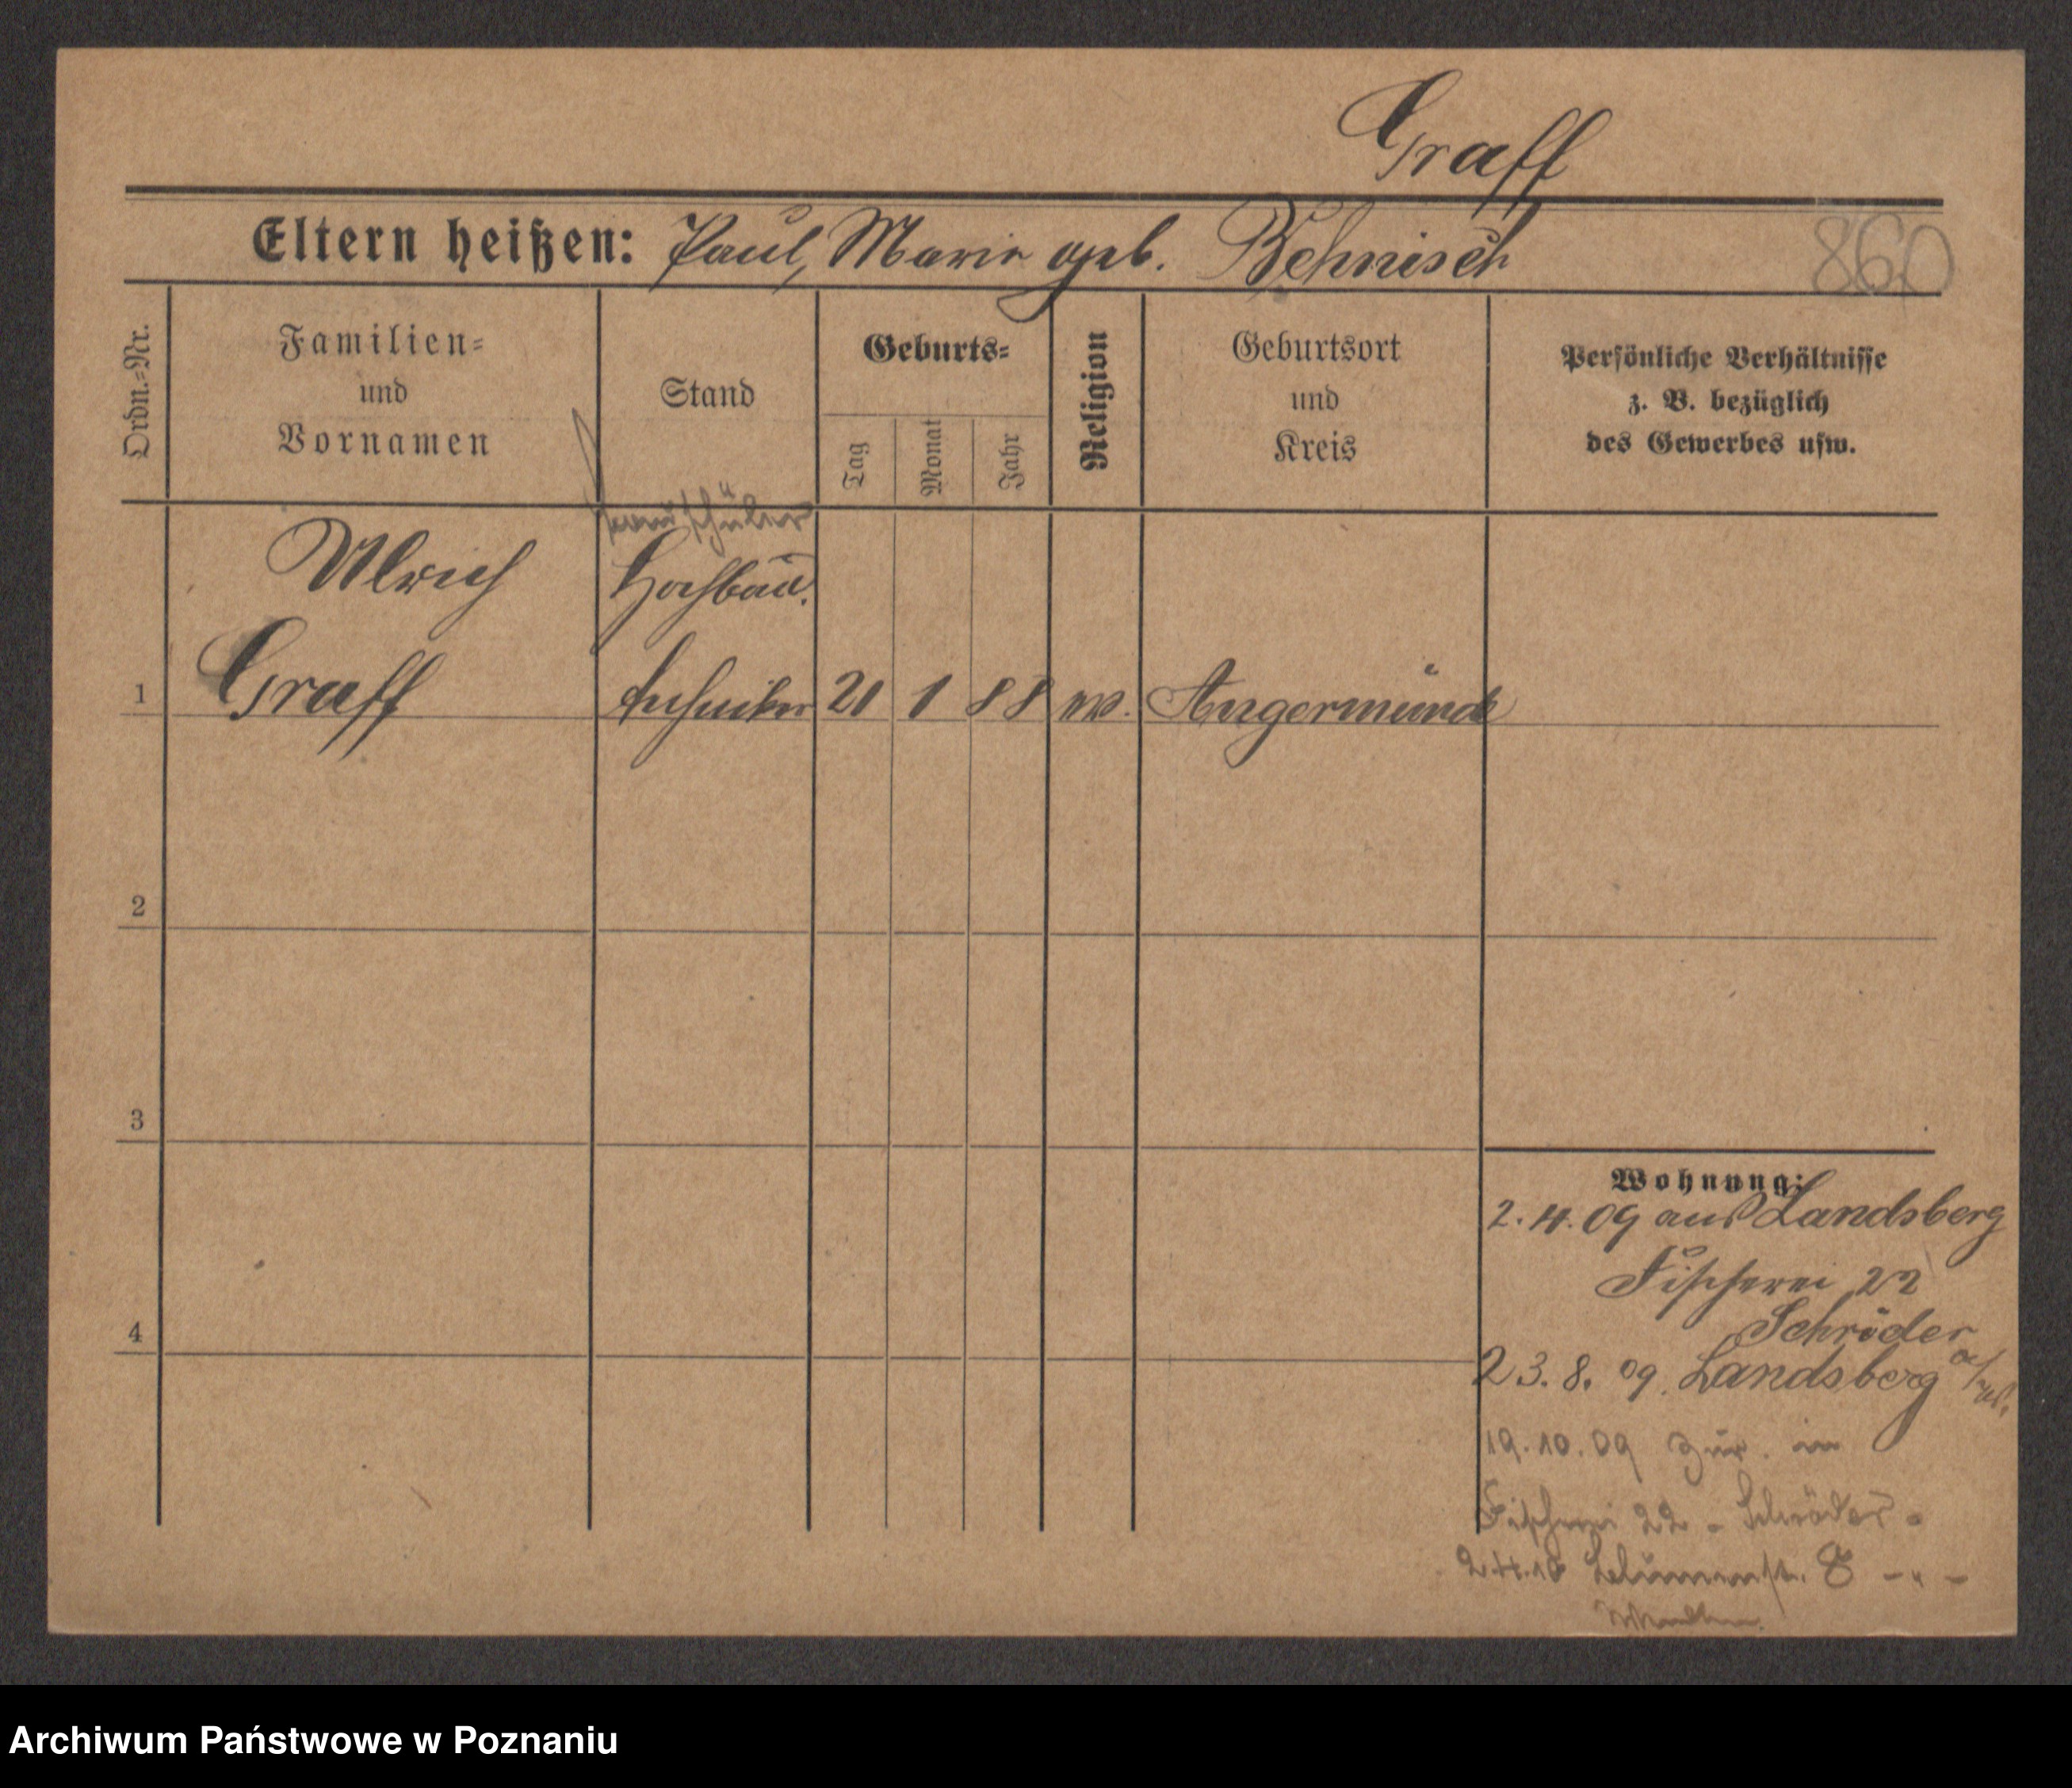 Graff
Eltern heißen: Paul, Marie geb. Behnisch
860
Ordn.=Nr.
Familien=
und
Vornamen
Stand
Geburts=
Tag
Monat
Jahr
Religion
Geburtsort
und
Kreis
Persönliche Verhältnisse
z. B. bezüglich
des Gewerbes usw.
Bauschüler
Ulrich
Hochbau.
1 Graff techniker 21 1 88 ev. Angermünde
2
3
4
Wohnung:
2.4.09 aus Landsberg
Fischerei 22
Schröder
23.8.09. Landsberg a/W.
19.10.09 Zur. in
Fischerei 22 - Schröder -
2.4.10 8 - " -
Archiwum Państwowe w Poznaniu